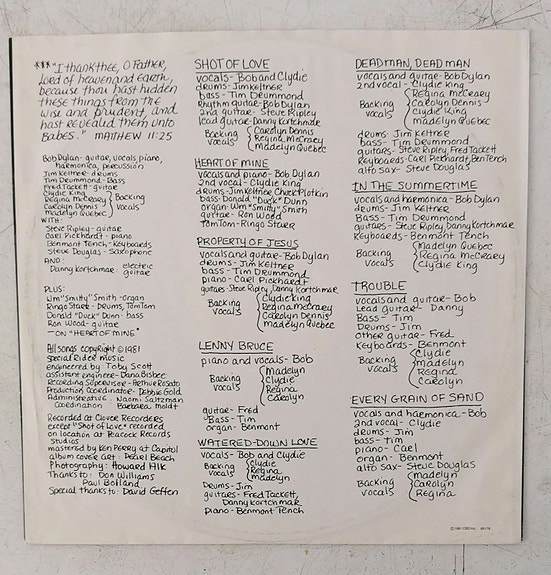 ***"I thank thee, O Father,
Lord of heaven and earth,
because thou hast hidden
these things from the
wise and prudent, and
hast revealed them unto
Babes." MATTHEW 11:25
Bob Dylan - guitar, vocals piano,
harmonica, percussion
Jim Keltner - drums
Tim Drummond - Bass
Fred Tackett - guitar
Clydie King
Regina McCreary
Carolyn Dennis
Madelyn Quebec
Backing
Vocals
WITH:
Steve Ripley - guitar
Carl Pickhardt - piano
Benmont Tench - Keyboards
Steve Douglas - Saxophone
AND:
Danny Kortchmar: electric
guitar
PLUS:
Wm "Smitty" Smith - organ
Ringo Starr - Drums, TomTom
Donald "Duck" Dunn - bass
Ron Wood - guitar
— ON "HEART OF MINE"
All songs copyright © 1981
Special Rider Music
engineered by Toby Scott
assistant engineer - Dana Bisbee
Recording Supervisor - Arthur Rosato
Production Coordinator - Debbie Gold
Administrative Naomi Saltzman
Coordination Barbara Moldt
Recorded at Clover Recorders
except "Shot of Love" recorded
on location at Peacock Records
Studios
mastered by Ken Perry at Capitol
album cover art: Pearl Beach
Photography: Howard Alk
Thanks to: Don Williams
Paul Bolland
Special thanks to: David Geffen
SHOT OF LOVE
vocals - Bob and Clydie
drums - Jim Keltner
bass - Tim Drummond
Rhythm guitar - Bob Dylan
2nd guitar - Steve Ripley
lead guitar - Danny Kortchmar
Backing
vocals
Carolyn Dennis
Regina McCreary
Madelyn Quebec
HEART OF MINE
vocals and piano - Bob Dylan
2nd vocal - Clydie King
drums - Jim Keltner Chuck Plotkin
bass - Donald "Duck" Dunn
organ - Wm "Smitty" Smith
guitar - Ron Wood
TomTom - Ringo Starr
PROPERTY OF JESUS
vocals and guitar - Bob Dylan
drums - Jim Keltner
bass - Tim Drummond
piano - Carl Pickhardt
guitars - Steve Ripley, Danny Kortchmar
Backing
vocals
Clydie King
Regina McCrary
Carolyn Dennis
Madelyn Quebec
LENNY BRUCE
piano and vocals - Bob
Backing
vocals
Madelyn
Clydie
Regina
Carolyn
guitar - Fred
Bass - Tim
organ - Benmont
WATERED-DOWN LOVE
vocals - Bob and Clydie
Backing
vocals
Clydie
Regina
Madelyn
Drums - Jim
guitars - Fred Tackett,
Danny Kortchmar
piano - Benmont Tench
DEAD MAN, DEAD MAN
vocals and guitar - Bob Dylan
2nd vocal - Clydie King
Backing
vocals
Regina McCrary
Carolyn Dennis
Clydie King
Madelyn Quebec
drums - Jim Keltner
bass - Tim Drummond
guitars - Steve Ripley, Fred Tackett
Keyboards - Carl Pickhardt, Ben Tench
alto sax - Steve Douglas
IN THE SUMMERTIME
vocals and harmonica - Bob Dylan
drums - Jim Keltner
Bass - Tim Drummond
guitars - Steve Ripley, Danny Kortchmar
Keyboards - Benmont Tench
Backing
vocals
Madelyn Quebec
Regina McCreary
Clydie King
TROUBLE
vocals and guitar - Bob
Lead guitar - Danny
Bass - Tim
Drums - Jim
other guitar - Fred
Keyboards - Benmont
Backing
vocals
Clydie
Madelyn
Regina
Carolyn
EVERY GRAIN OF SAND
vocals and harmonica - Bob
2nd vocal - Clydie
drums - Jim
bass - Tim
piano - Carl
organ - Benmont
alto sax - Steve Douglas
Backing
vocals
Madelyn
Carolyn
Regina